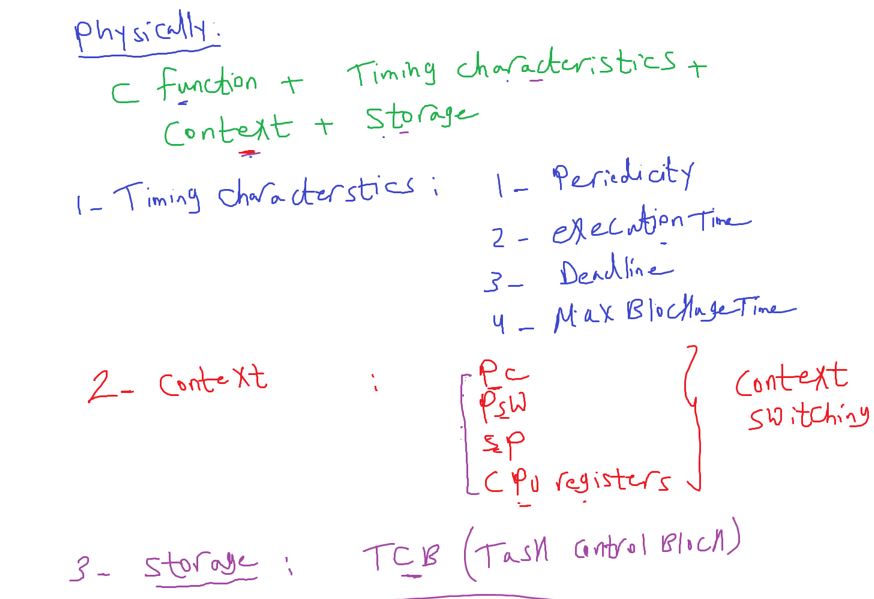 physically:
C function + Timing characteristics +
Context + Storage
1- Timing characterstics : 1- Periedicity
2- execution Time
3- Deadline
4- Max Blockage Time
2- Context : PC
PSW
SP
CPU registers
Context
switching
3- storage : TCB (Task control Block)